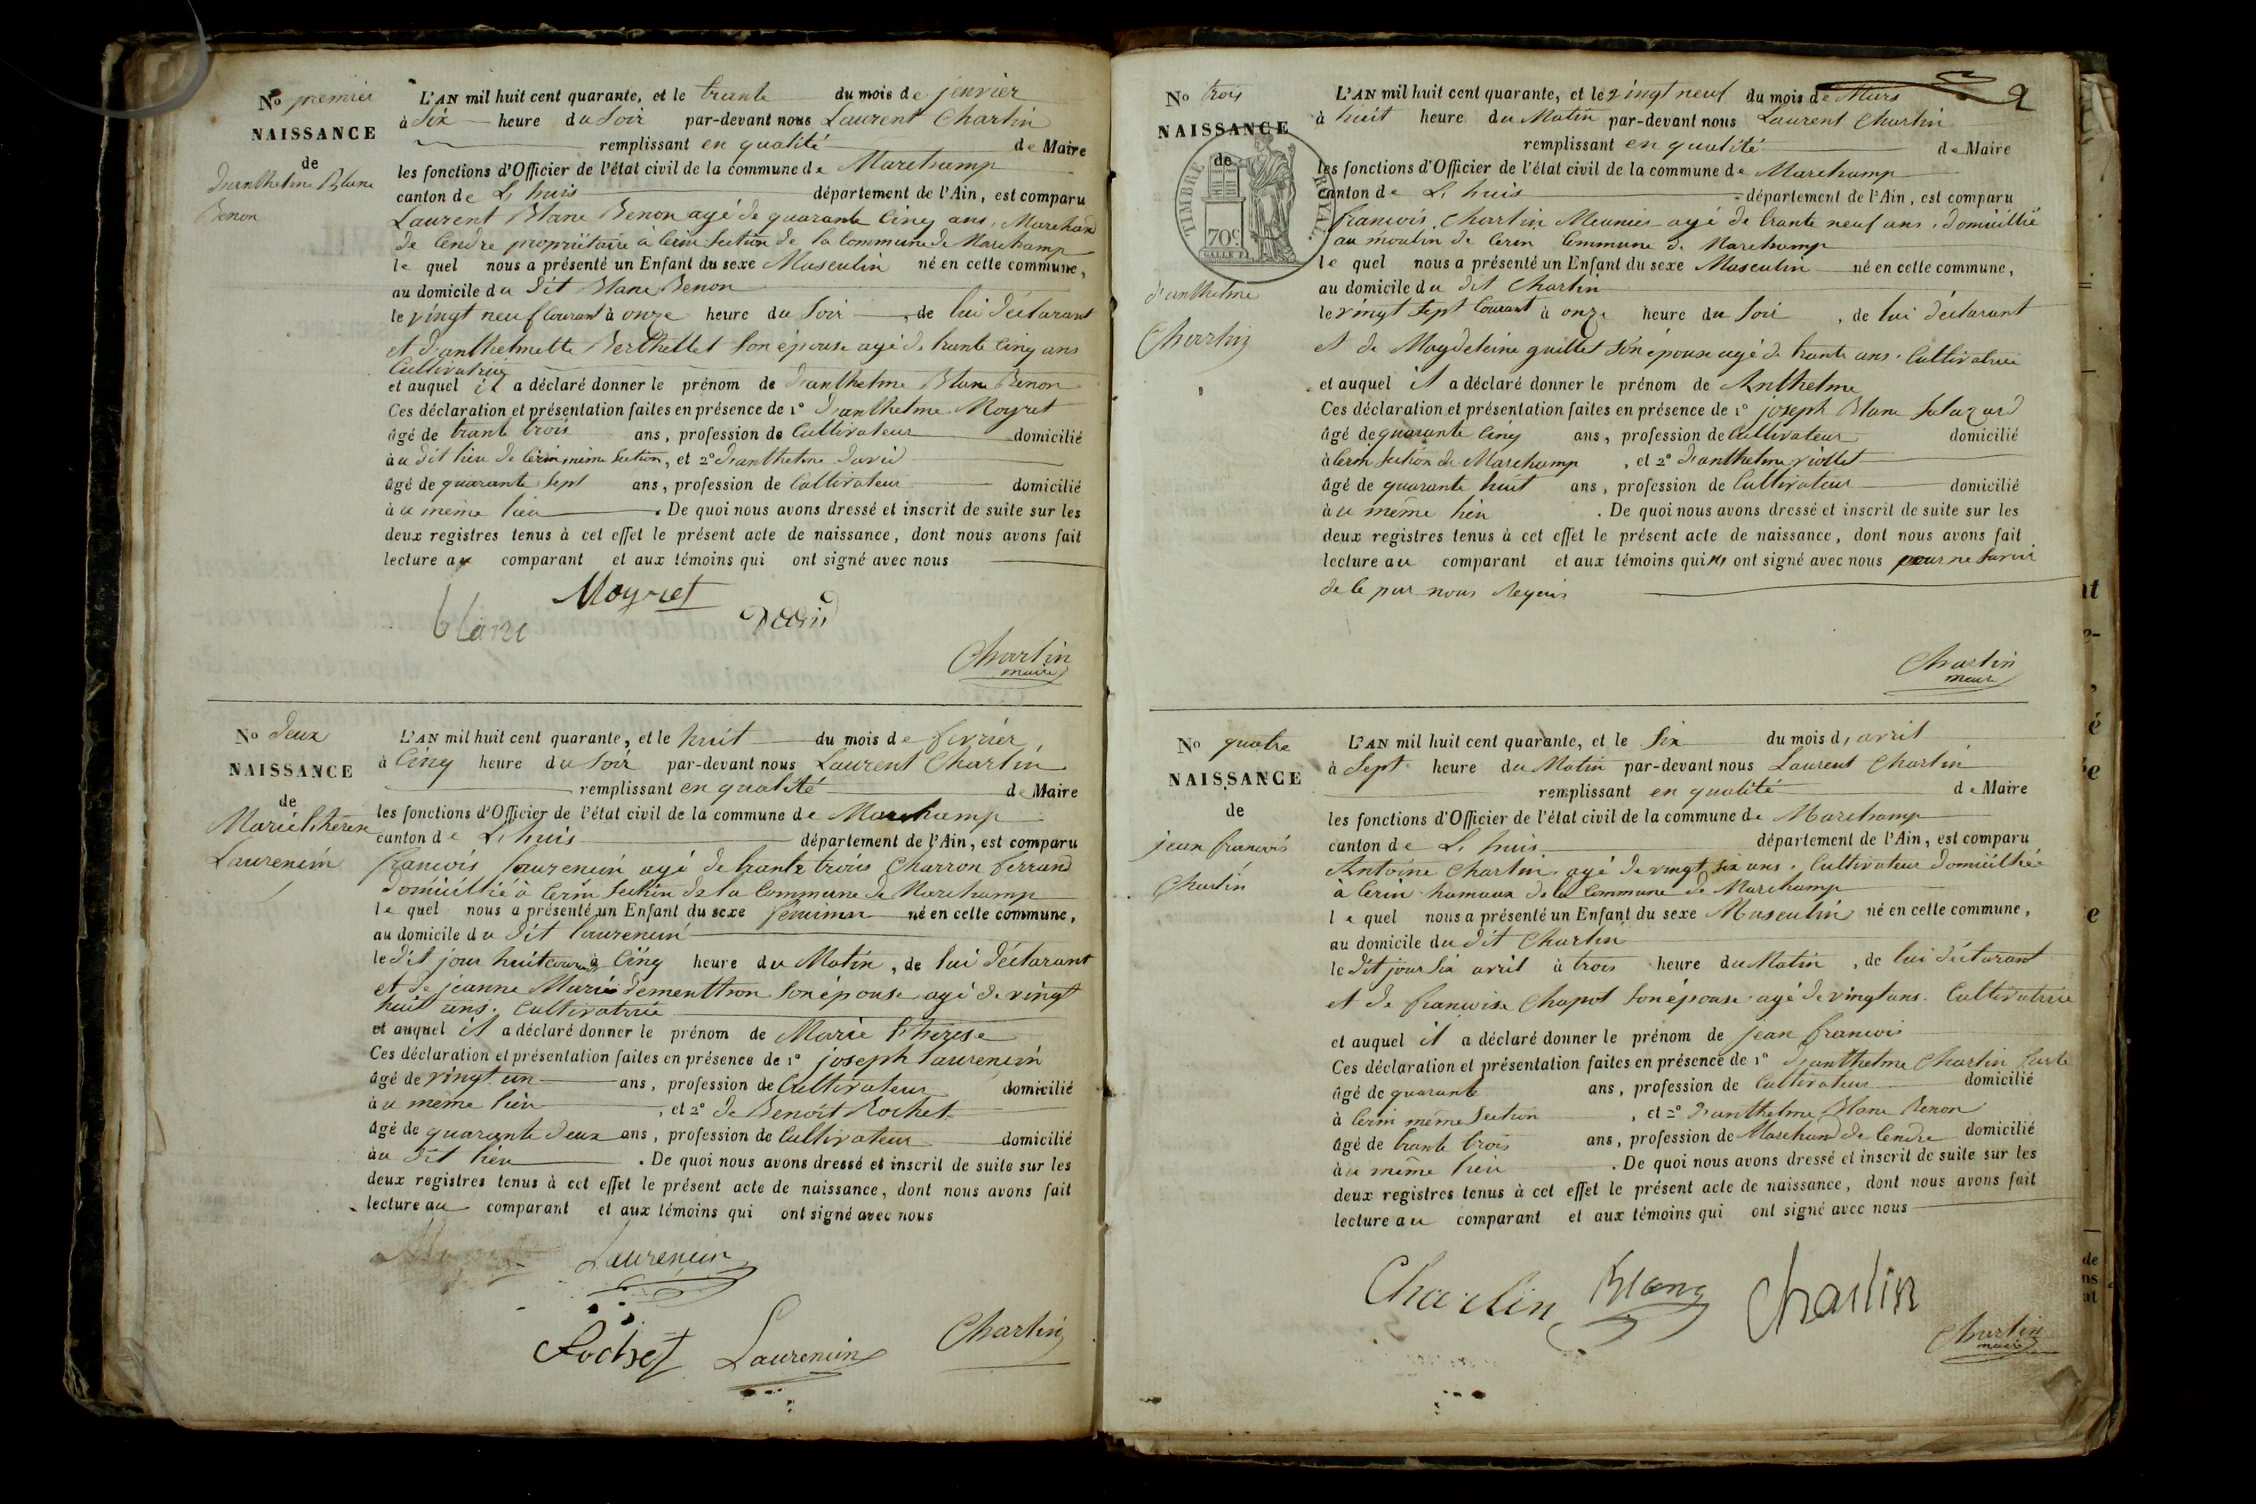 No premier
NAISSANCE
de
d'anthelme Blanc
Benon
L'AN mil huit cent quarante, et le trante du mois de jenvier
à Six heure du Soir par-devant nous Laurent Charlin
remplissant en qualité de Maire
les fonctions d'Officier de l'état civil de la commune de Marchamp
canton de L huis département de l'Ain, est comparu
Laurent Blanc Benon agé de quarante Cinq ans, Marchand
de Cendre propriétaire à Cerin Section de la Commune de Marchamp
le quel nous a présenté un Enfant du sexe Masculin né en cette commune,
au domicile du dit Blanc Benon
le vingt neuf Courant à onze heure du Soir, de lui déclarant
et d'anthelmette Berthellet Son épouse agé de trante Cinq ans
Cultivatrice
et auquel il a déclaré donner le prénom de d'anthelme Blanc Benon
Ces déclaration et présentation faites en présence de 1° d'anthelme Moyret
âgé de trante trois ans, profession de Cultivateur domicilié
à u dit lieu de Cerin même Section, et 2° d'anthelme david
âgé de quarante Sept ans, profession de Cultivateur domicilié
à u même lieu. De quoi nous avons dressé et inscrit de suite sur les
deux registres tenus à cet effet le présent acte de naissance, dont nous avons fait
lecture au comparant et aux témoins qui ont signé avec nous
Moyret
blanc david
Charlin
maire
No deux
NAISSANCE
de
Marie thérèse
Laurencin
L'AN mil huit cent quarante, et le huit du mois de février
à Cinq heure du Soir par-devant nous Laurent Charlin
remplissant en qualité de Maire
les fonctions d'Officier de l'état civil de la commune de Marchamp
canton de L huis département de l'Ain, est comparu
francois Laurencin agé de trante trois Charron ferrand
domicillié à Cerin Section de la Commune de Marchamp
le quel nous a présenté un Enfant du sexe féminin né en cette commune,
au domicile du dit Laurencin
le dit jour huit courant à Cinq heure du Matin, de lui déclarant
et de jeanne Marie Son épouse agé de vingt
huit ans. Cultivatrice
et auquel il a déclaré donner le prénom de Marie thérèse
Ces déclaration et présentation faites en présence de 1° joseph laurencin
âgé de vingt un ans, profession de Cultivateur domicilié
à u même lieu, et 2° de Benoit Rochet
âgé de quarante deux ans, profession de Cultivateur domicilié
à u dit lieu. De quoi nous avons dressé et inscrit de suite sur les
deux registres tenus à cet effet le présent acte de naissance, dont nous avons fait
lecture au comparant et aux témoins qui ont signé avec nous
Laurencin
Rochet Laurencin Charlin
2
No trois
NAISSANCE
de
TIMBRE ROYAL.
70c
d'anthelme
Charlin
L'AN mil huit cent quarante, et le vingt neuf du mois de Mars
à huit heure du Matin par-devant nous Laurent Charlin
remplissant en qualité de Maire
les fonctions d'Officier de l'état civil de la commune de Marchamp
canton de L huis département de l'Ain, est comparu
francois Charlin Meunier agé de trante neuf ans, domicillié
au moulin de Cerin Commune de Marchamp
le quel nous a présenté un Enfant du sexe Masculin né en cette commune,
au domicile du dit Charlin
le vingt Sept Courant à onze heure du Soir, de lui déclarant
et de Magdeleine guillet Son épouse agé de trante ans. Cultivatrice
et auquel il a déclaré donner le prénom de Anthelme
Ces déclaration et présentation faites en présence de 1° joseph Blanc Salazard
âgé de quarante Cinq ans, profession de Cultivateur domicilié
à Cerin Section de Marchamp, et 2° d'anthelme viollet
âgé de quarante huit ans, profession de Cultivateur domicilié
à u même lieu. De quoi nous avons dressé et inscrit de suite sur les
deux registres tenus à cet effet le présent acte de naissance, dont nous avons fait
lecture au comparant et aux témoins qui n' ont signé avec nous pour ne Savoir
de le par nous Requis
Charlin
maire
No quatre
NAISSANCE
de
jean francois
Charlin
L'AN mil huit cent quarante, et le Six du mois d, avril
à Sept heure du Matin par-devant nous Laurent Charlin
remplissant en qualité de Maire
les fonctions d'Officier de l'état civil de la commune de Marchamp
canton de L huis département de l'Ain, est comparu
Antoine Charlin agé de vingt six ans. Cultivateur domicillié
à Cerin hamaux de la Commune de Marchamp
le quel nous a présenté un Enfant du sexe Masculin né en cette commune,
au domicile du dit Charlin
le dit jour Six avril à trois heure du Matin, de lui déclarant
et de francoise Chapot Son épouse agé de vingt ans. Cultivatrice
et auquel il a déclaré donner le prénom de jean francois
Ces déclaration et présentation faites en présence de 1° d'anthelme Charlin
âgé de quarante ans, profession de Cultivateur domicilié
à Cerin même Section, et 2° d'anthelme Blanc Benon
âgé de trante trois ans, profession de Marchand de Cendre domicilié
à u même lieu. De quoi nous avons dressé et inscrit de suite sur les
deux registres tenus à cet effet le présent acte de naissance, dont nous avons fait
lecture au comparant et aux témoins qui ont signé avec nous
Charlin Blanc Charlin
Charlin
maire